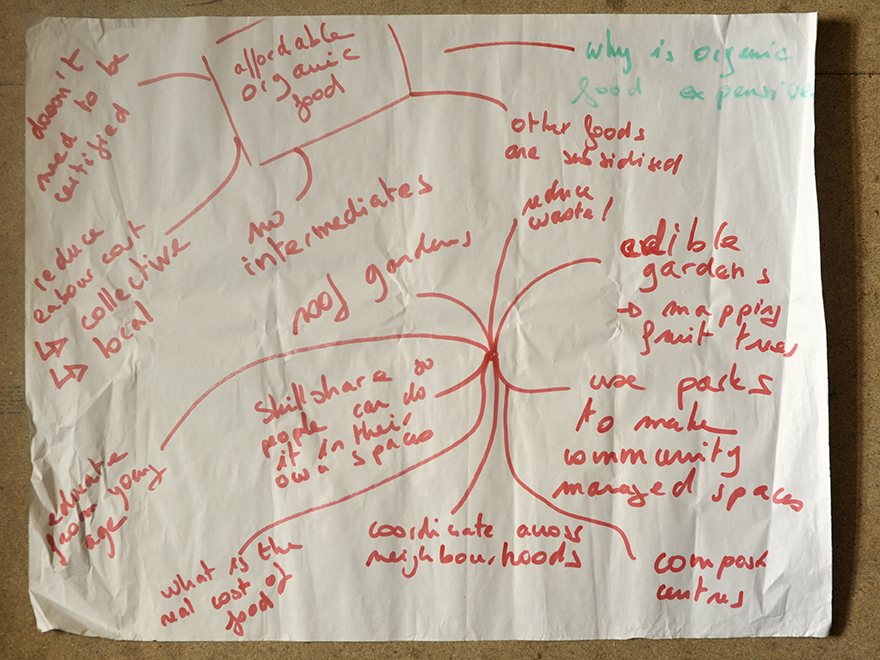 affordable
organic
food
why is organic
food expensive
doesn't
need to be
certified
other foods
are subsidised
reduce
labour cost
↳ collective
↳ local
no
intermediates
reduce
waste!
edible
gardens
→ mapping
fruit trees
roof gardens
skillshare so
people can do
it in their
own spaces
use parks
to make
community
managed spaces
educate
from young
age
what is the
real cost of
food
coordinate across
neighbourhoods
compost
centres